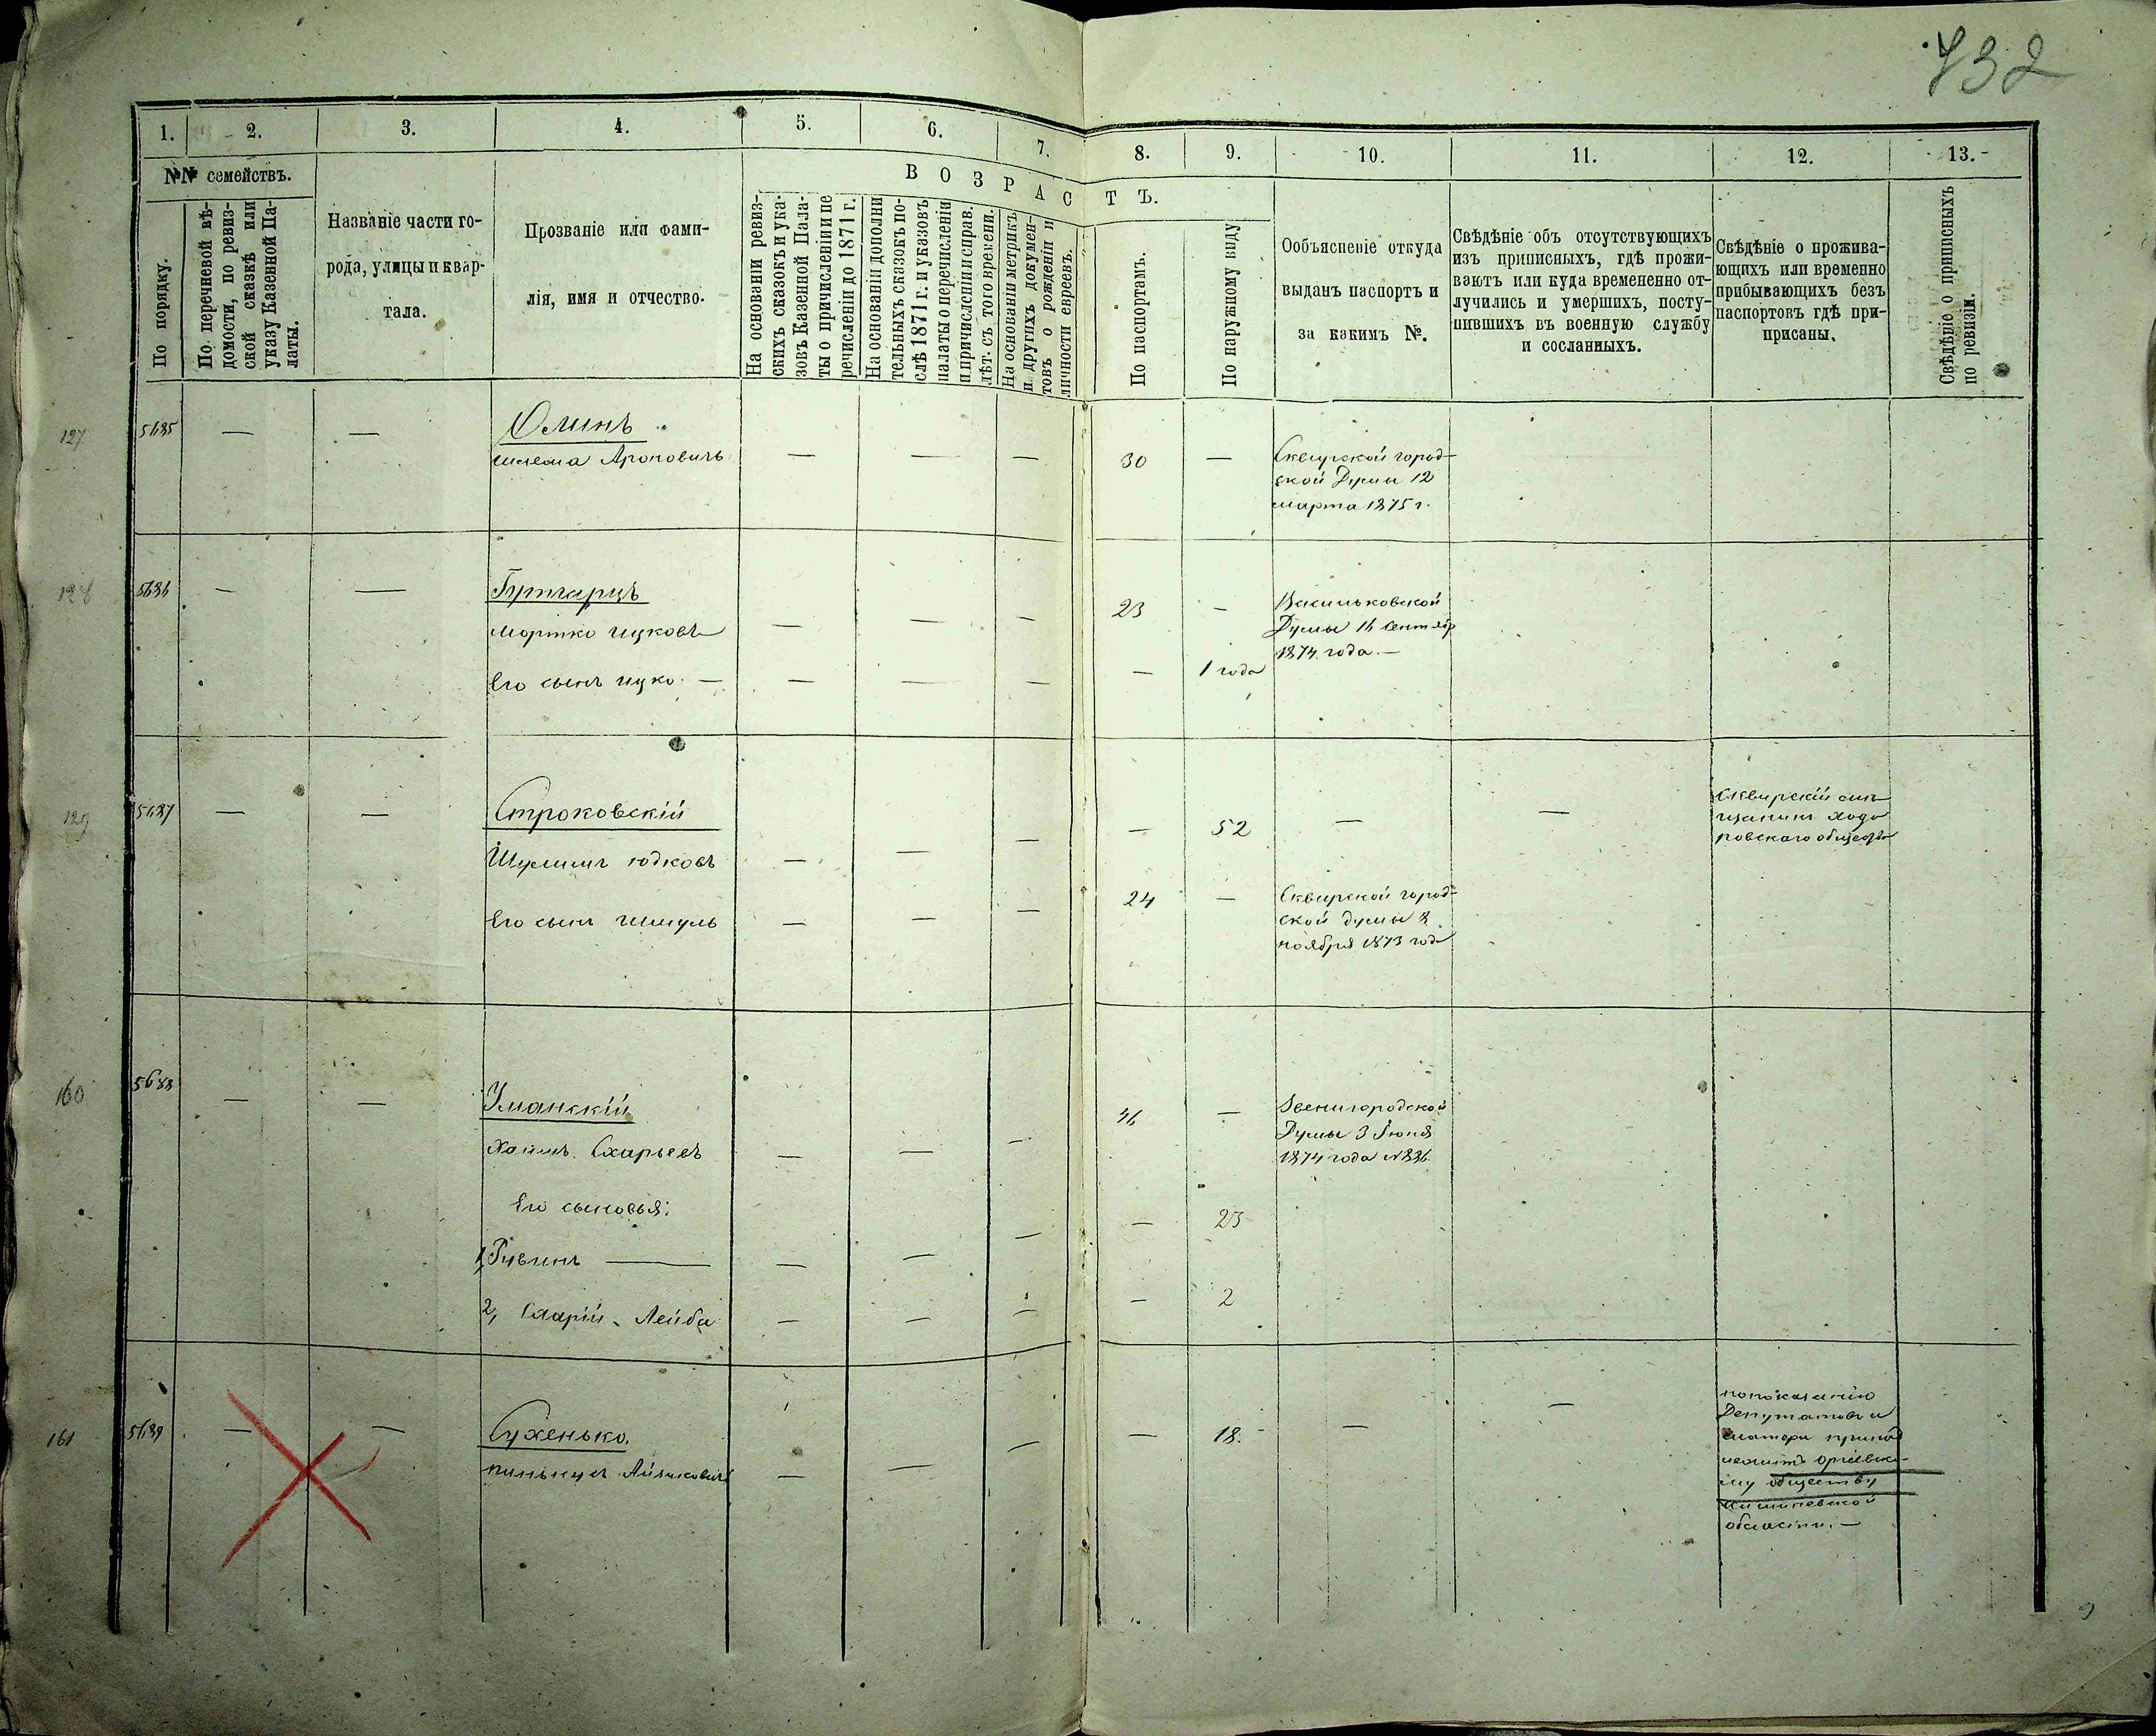 732
1. 2. 3. 4. 5. 6. 7. 8. 9. 10. 11. 12. 13.
№№ семействъ.
По порядку.
По перечневой вѣ-
домости, по ревиз-
ской сказкѣ или
указу Казенной Па-
латы.
Названіе части го-
рода, улицы и квар-
тала.
Прозваніе или фами-
лія, имя и отчество.
ВОЗРАСТЪ.
На основаніи ревиз-
скихъ сказокъ и ука-
зовъ Казенной Пала-
ты о причисленіи и пе
речисленіи до 1871 г.
На основаніи дополни
тельныхъ сказокъ по-
слѣ 1871 г. и указовъ
палаты о перечисленіи
и причисленіи и справ.
лѣт. съ того времени.
На основаніи метрикъ
и другихъ докумен-
товъ о рожденіи и
личности евреевъ.
По паспортамъ.
По наружному виду
Ообъясненіе откуда
выданъ паспортъ и
за какимъ №.
Свѣдѣніе объ отсутствующихъ
изъ приписныхъ, гдѣ прожи-
ваютъ или куда временено от-
лучились и умершихъ, посту-
пившихъ въ военную службу
и сосланныхъ.
Свѣдѣніе о прожива-
ющихъ или временно
прибывающихъ безъ
паспортовъ гдѣ при-
приcаны.
Свѣдѣніе о приписныхъ
по ревизіи.
127 5685 — — Олинъ
шлема Ароновичъ — — — 30 — Сквирской город-
ской Думы 12
марта 1875 г.
128 5686 — —
мортко ицковъ — — — 23 — Васильковской
Думы 16 сентябр
1874 года. —
Его сынъ ицко. — — — — — 1 года
129 5687 — — Строковскій
Шулимъ юдковъ — — — — 52 — — Сквирскій мѣ-
щанинъ ходо
ровскаго общества
Его сынъ шмуль — — — 24 — Сквирской город-
ской думы 8
ноября 1873 года
160 5688 — — Уманскій
Хаимъ Схарьевъ — — — 46 — Звенигородской
Думы 3 Іюня
1874 года №836
Его сыновья:
1, Рувинъ — — — — — 23
2, Схарій-Лейба — — — — 2
161 5689 — — Сухенько.
пинькусъ — — — — 18. — — по показанію
Депутатовъ и
матери принад
лежитъ оргіевско-
му обществу
кишиневской
области. —